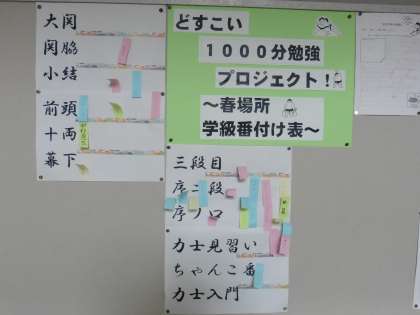 大関
関脇
小結
前頭
十両
幕下
どすこい
1000分勉強
プロジェクト!
〜春場所
学級番付け表〜
三段目
序二段
序ノ口
力士見習い
ちゃんこ番
力士入門